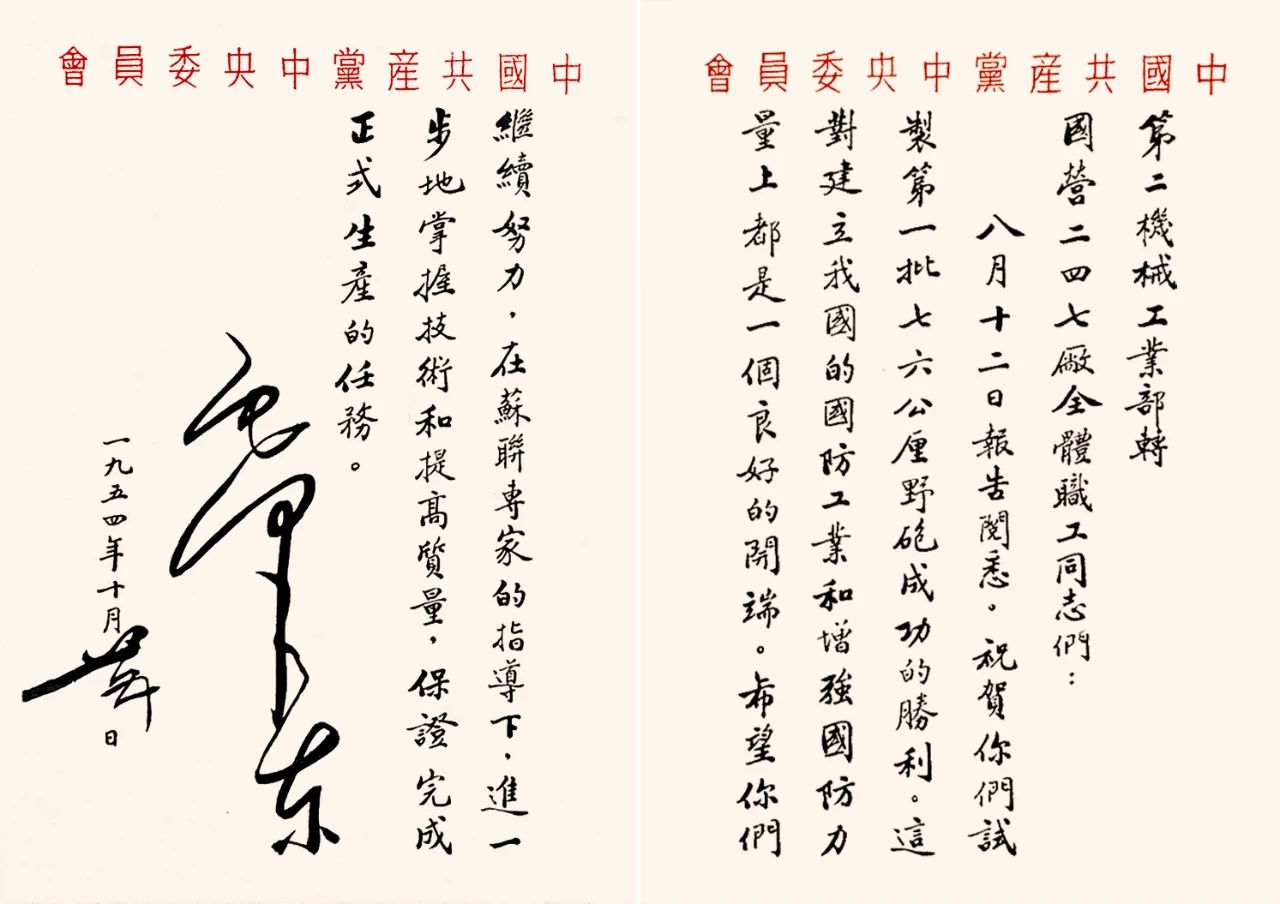 中國共産黨中央委員會
第二機械工業部轉
國營二四七廠全體職工同志們：
八月十二日報告閱悉。祝賀你們試
製第一批七六公厘野砲成功的勝利。這
對建立我國的國防工業和增強國防力
量上都是一個良好的開端。希望你們
中國共産黨中央委員會
繼續努力，在蘇聯專家的指導下，進一
步地掌握技術和提高質量，保證完成
正式生產的任務。
毛澤東
一九五四年十月日